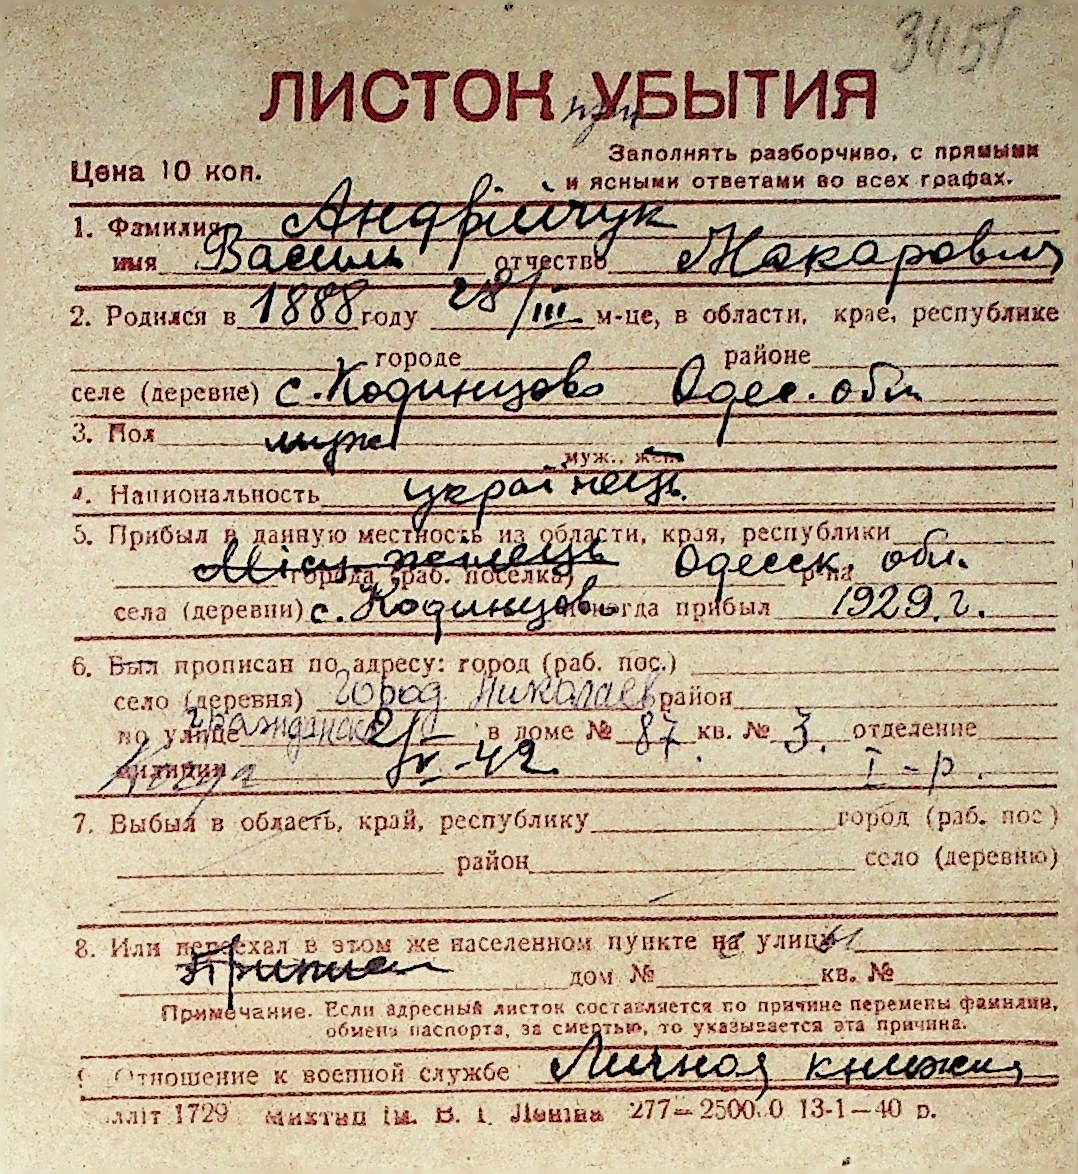 3451
ЛИСТОК УБЫТИЯ
при
Цена 10 коп.
Заполнять разборчиво, с прямыми
и ясными ответами во всех графах.
1. Фамилия Андрійчук
имя Василь отчество Макарович
2. Родился в 1888 году 28/III м-це, в области, крае, республике
городе районе
селе (деревне) с. Кодинцово Одес. обл.
3. Пол муж
муж., жен.
4. Национальность українець.
5. Прибыл в данную местность из области, края, республики
Місц. Одесск. обл.
города (раб. поселка) р-на
села (деревни) с. Кодинцово и когда прибыл 1929 г.
6. Был прописан по адресу: город (раб. пос.)
село (деревня) город Николаев район
по улице Гражданска в доме № 87 кв. № 3. отделение
милиции 2/IV-42 I-р.
7. Выбыл в область, край, республику город (раб. пос)
район село (деревню)
8. Или переехал в этом же населенном пункте на улицу
дом № кв. №
Примечание. Если адресный листок составляется по причине перемены фамилии,
обмена паспорта, за смертью, то указывается эта причина.
Отношение к военной службе Личная книжка
літ 1729 Миктип ім. В. І. Леніна 277—25000 13-1—40 р.